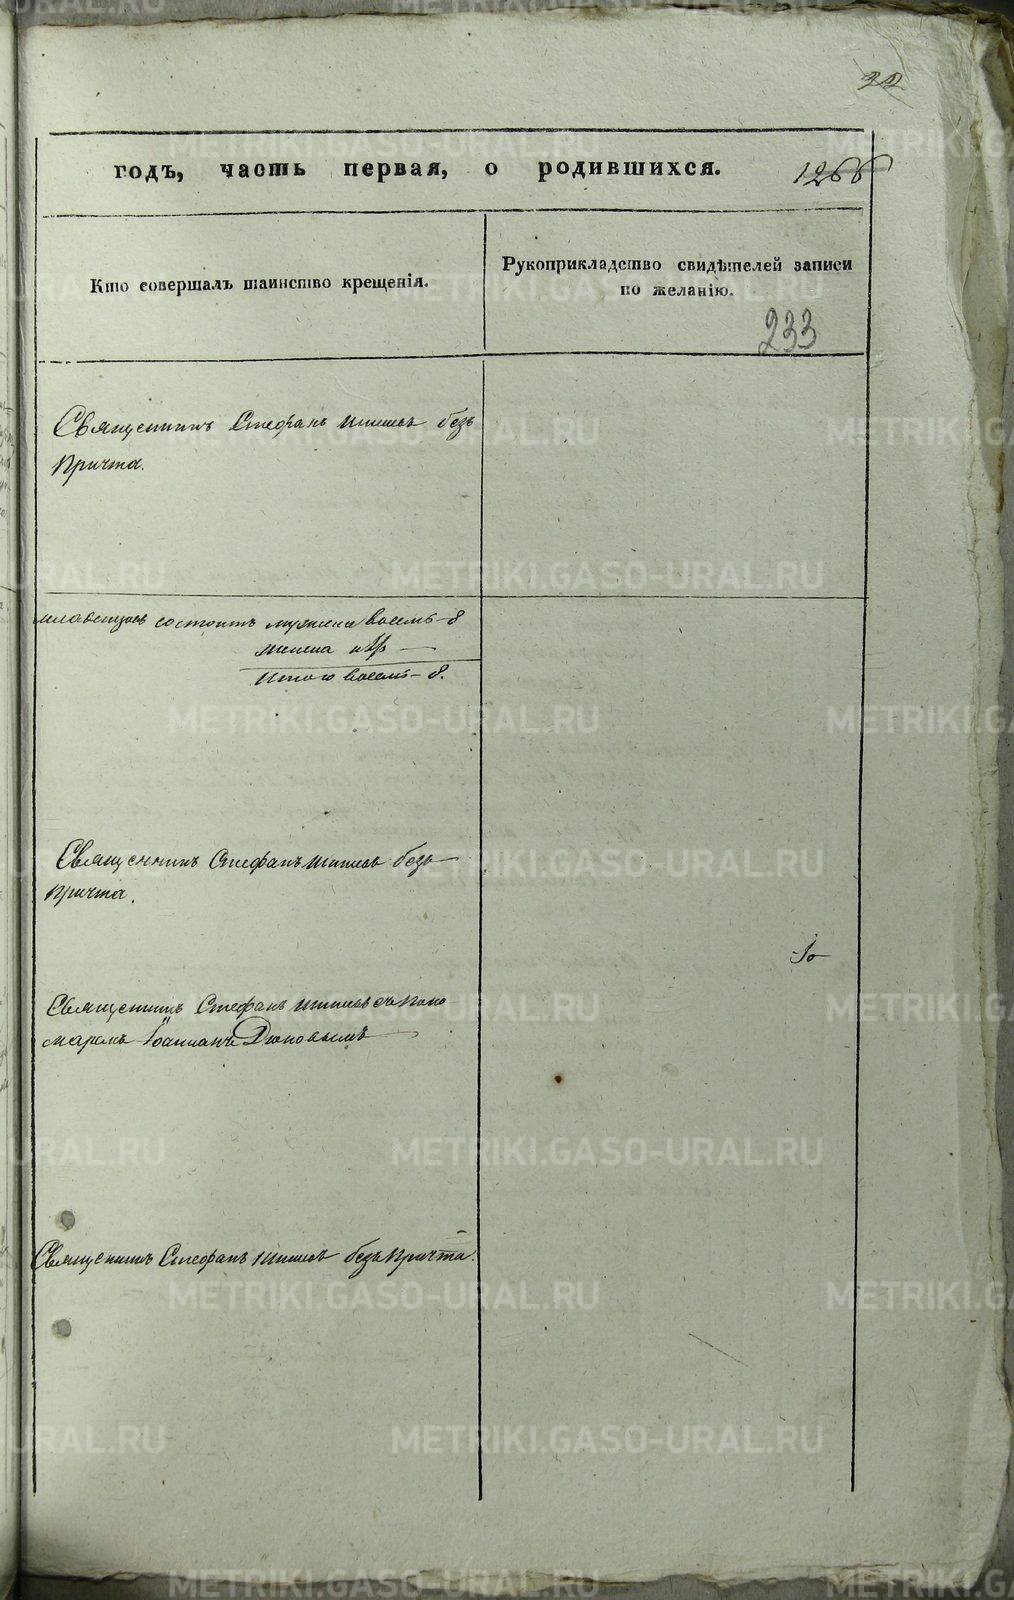 22
годъ, часть первая, о родившихся. 1266
Кто совершалъ таинство крещенія.
Рукоприкладство свидѣтелей записи
по желанію.
233
Священникъ Стефанъ Шишевъ безъ
причта.
младенцовъ состоитъ мужеска восемь - 8
женска
Итого восемь - 8.
Священникъ Стефанъ Шишевъ безъ
причта.
Священникъ Стефанъ Шишевъ съ поно
маремъ Іоанномъ
Священникъ Стефанъ Шишевъ безъ причта.
METRIKI.GASO-URAL.RU